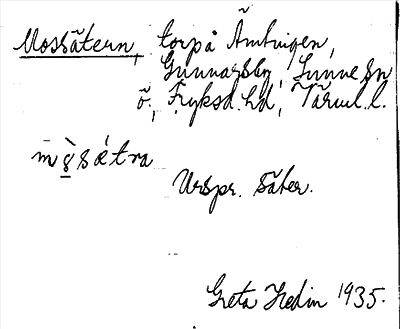 Mossätern, torp å Ämtvigen,
Gunnarsby, Sunne sn
ö., Fryksd. hd, Värml. l.
mò̱sǽtra
Urspr. säter.
Greta Hedin 1935.